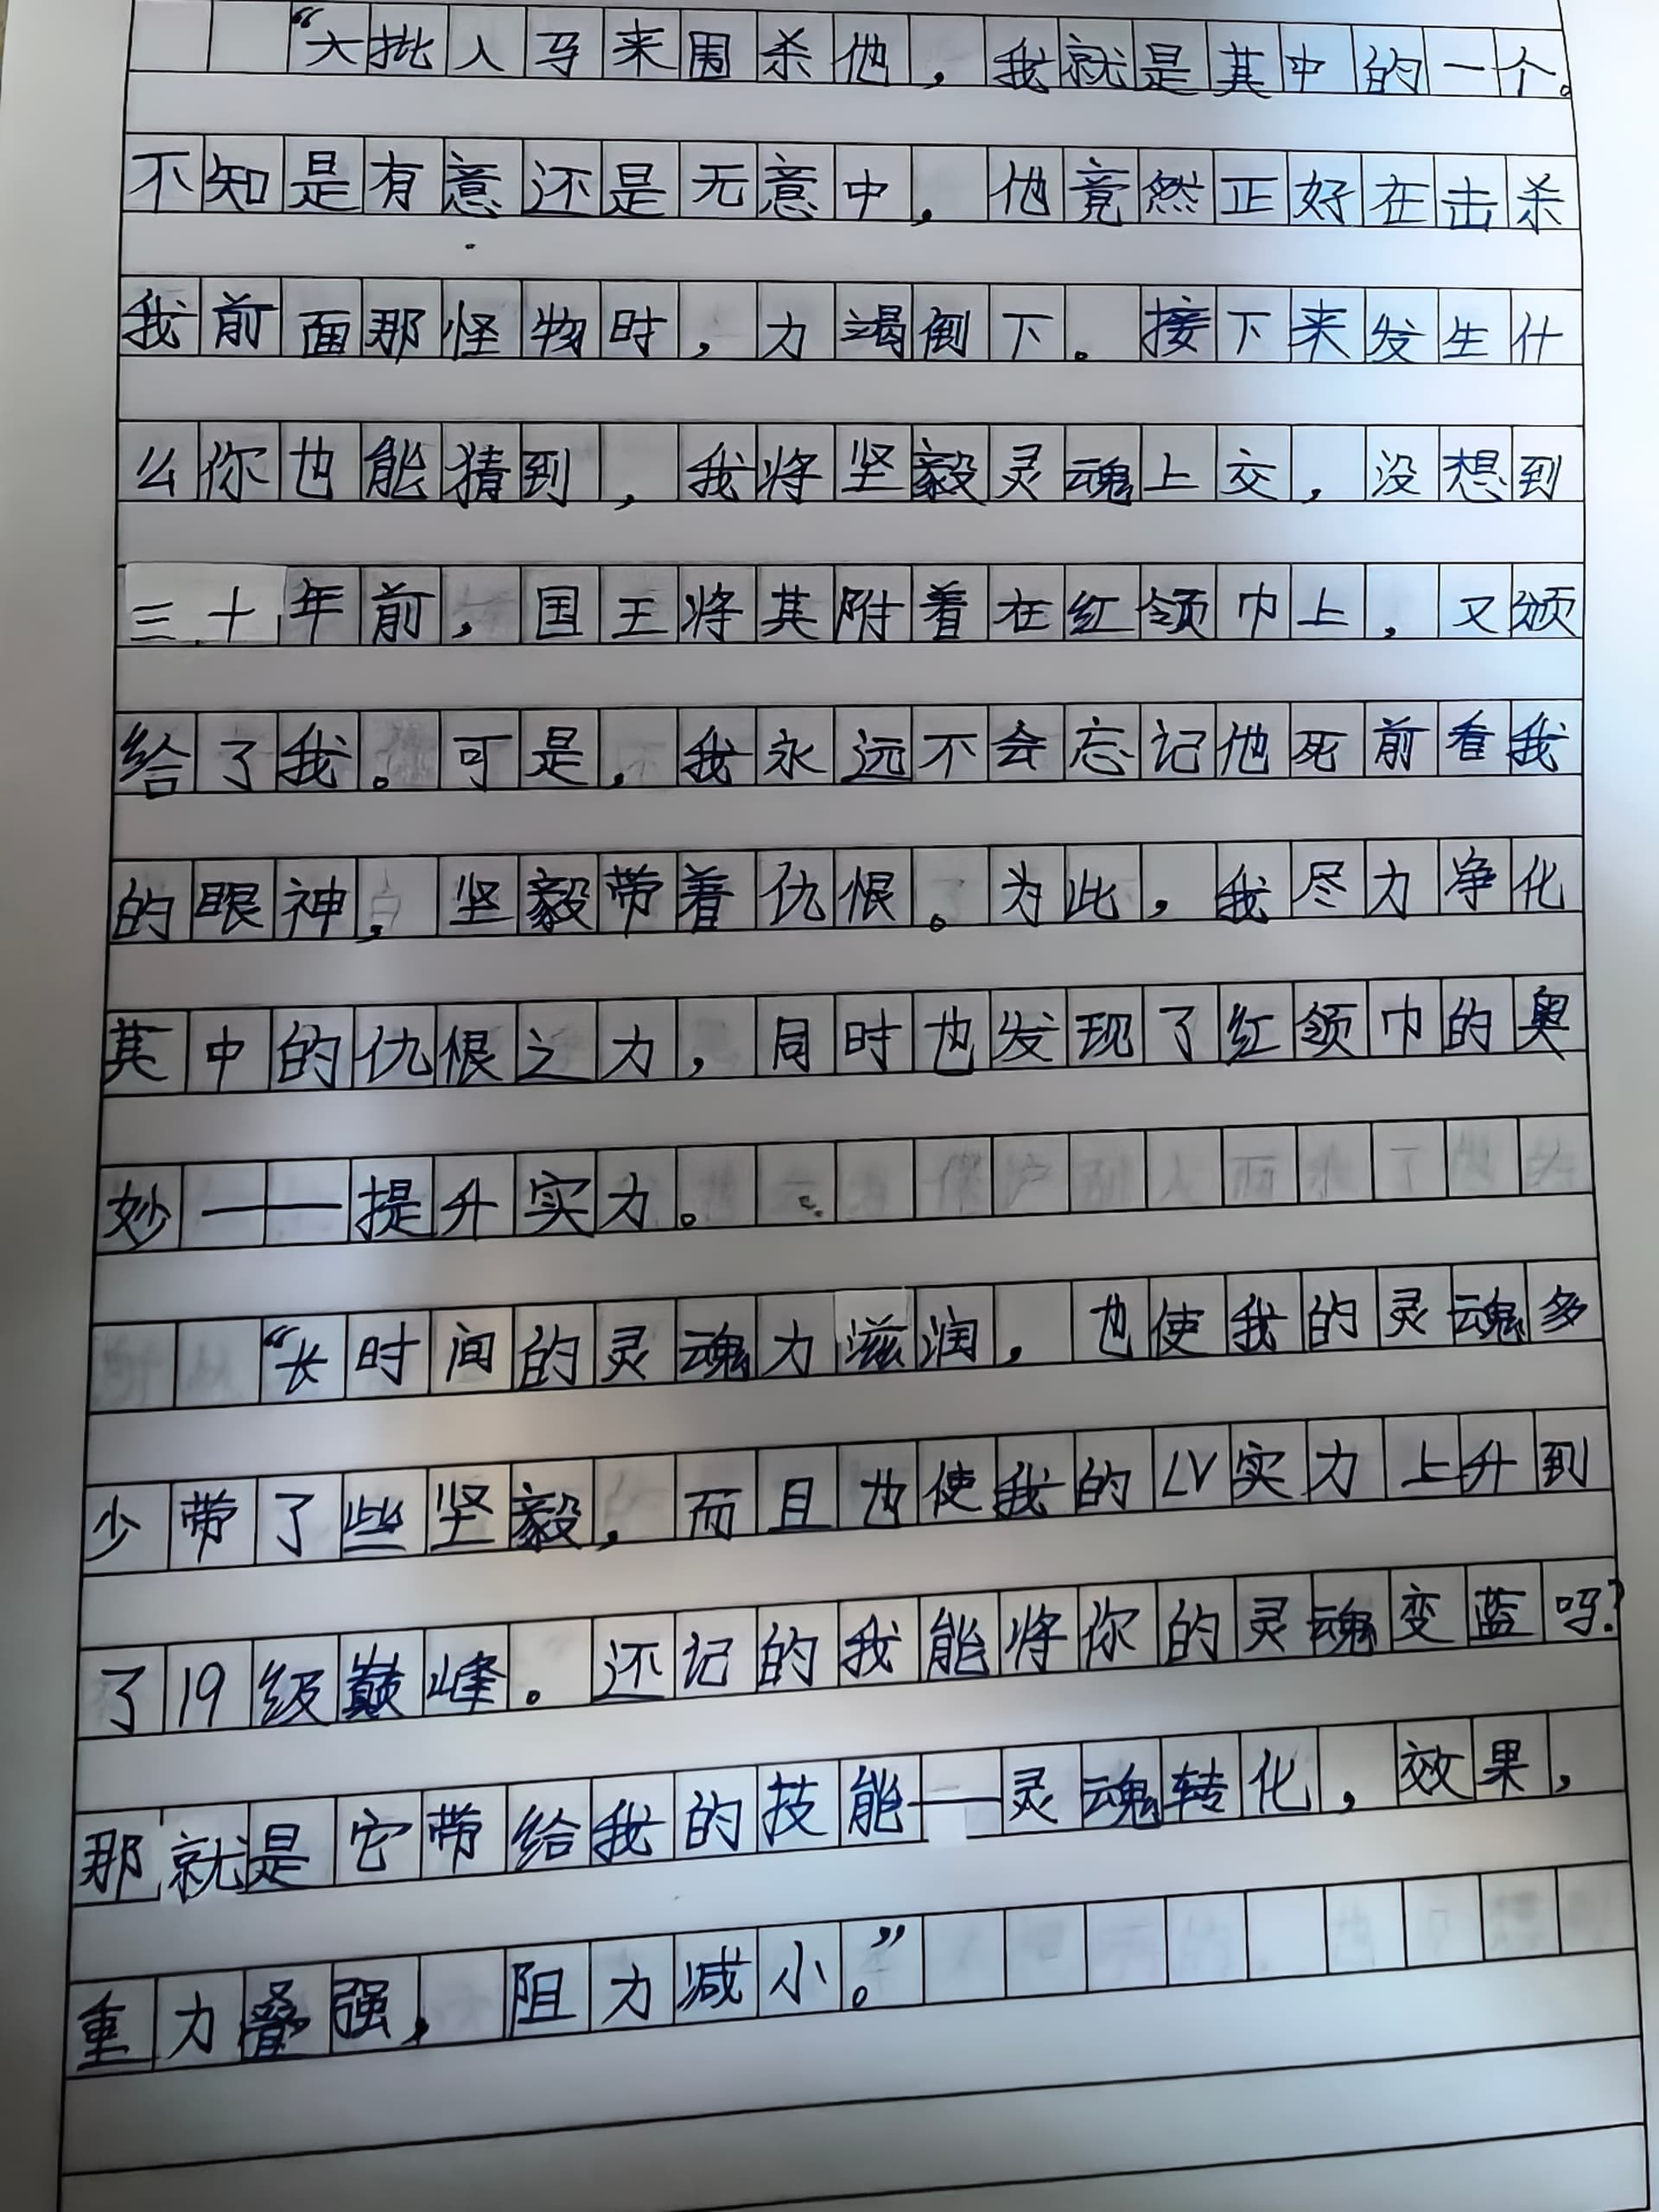 “大批人马来围杀他，我就是其中的一个。
不知是有意还是无意中，他竟然正好在击杀
我前面那怪物时，力竭倒下。接下来发生什
么你也能猜到，我将坚毅灵魂上交，没想到
三十年前，国王将其附着在红领巾上，又颁
给了我。可是，我永远不会忘记他死前看我
的眼神，坚毅带着仇恨。为此，我尽力净化
其中的仇恨之力，同时也发现了红领巾的奥
妙——提升实力。
“长时间的灵魂力滋润，也使我的灵魂多
少带了些坚毅，而且也使我的LV实力上升到
了19级巅峰。还记的我能将你的灵魂变蓝吗？
那就是它带给我的技能——灵魂转化，效果，
重力叠强，阻力减小。”